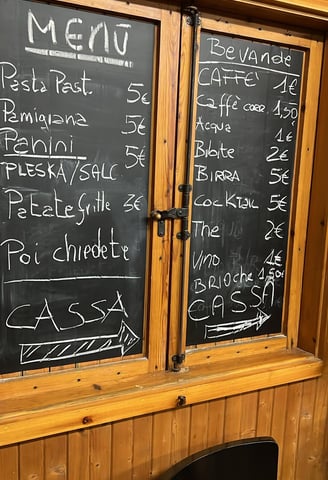 MENÙ
Pasta Past. 5€
Parmigiana 5€
Panini 5€
PLESKA/SALC
Patate fritte 3€
Poi chiedete
CASSA
BEVANDE
CAFFE' 1€
Caffè 1,50
Acqua 1€
Bibite 2€
BIRRA 5€
COCKTAIL 5€
The 2€
VINO 1€
BRIOche 1,50€
CASSA